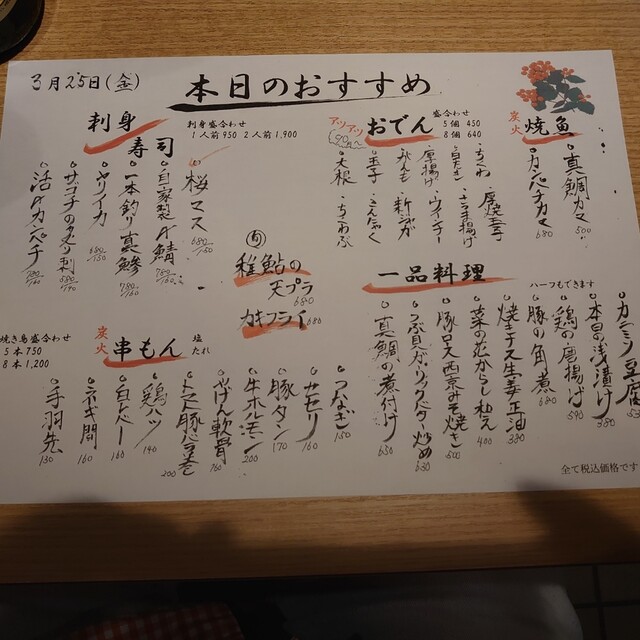 3月25日(金)
本日のおすすめ
刺身
寿司
刺身盛合わせ
1人前950 2人前1,900
桜マス
680/150
自家製〆鯖
780/160
一本釣り真鯵
780/160
ヤリイカ
680/150
サゴチの炙り刺
680/170
活〆カンパチ
780/160
アツアツ
90円〜
おでん
盛合わせ
5個 450
8個 640
ちくわ
白たき
厚揚げ
玉子
大根
ごぼう揚げ
ウインナー
こんにゃく
ちくわぶ
炭火
焼魚
真鯛カマ
500
カンパチカマ
680
稚鮎の
天プラ
680
カキフライ
680
一品料理
ハーフもできます
カニミソ豆腐
本日の浅漬け
380
鶏の唐揚げ
590
豚の角煮
680
焼きナス生姜正油
380
菜の花からし和え
400
豚ロス西京みそ焼き
500
つぶ貝ガーリックバター炒め
630
真鯛の煮付け
650
焼き鳥盛合わせ
5本750
8本1,200
炭火
串もん
塩
たれ
つなぎ
150
カセリ
160
豚タン
170
牛ホルモン
200
やげん軟骨
160
トマト豚バラ巻
200
鶏ハツ
140
白レバー
160
ネギ間
160
手羽先
130
全て税込価格です